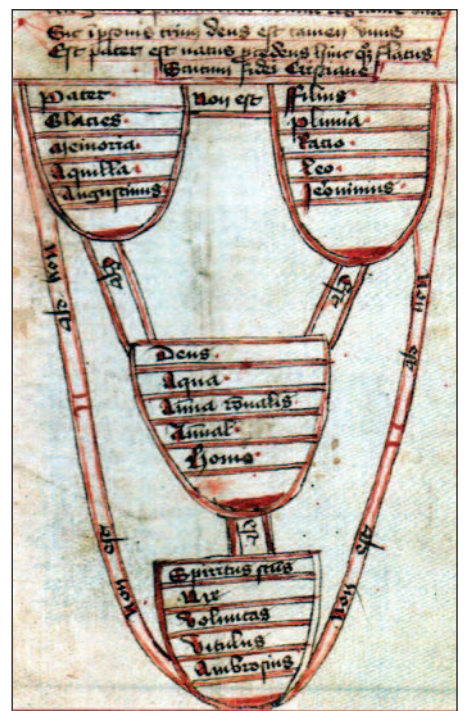 Sic ipsorum trium deus est tamen vnus
Est pater est natus procedens hinc qz flatus
Scutum fidei Cristiane
Pater
Glacies
Memoria
Aquilla
Augustinus
Non est
Filius
Pluuia
Racio
Leo
Jeronimus
est
est
Non est
Non est
Deus
Aqua
Aīma rōnalis
Animal
Homo
est
Non est
Non est
Spiritus scūs
Nix
Voluntas
Vitulus
Ambrosius